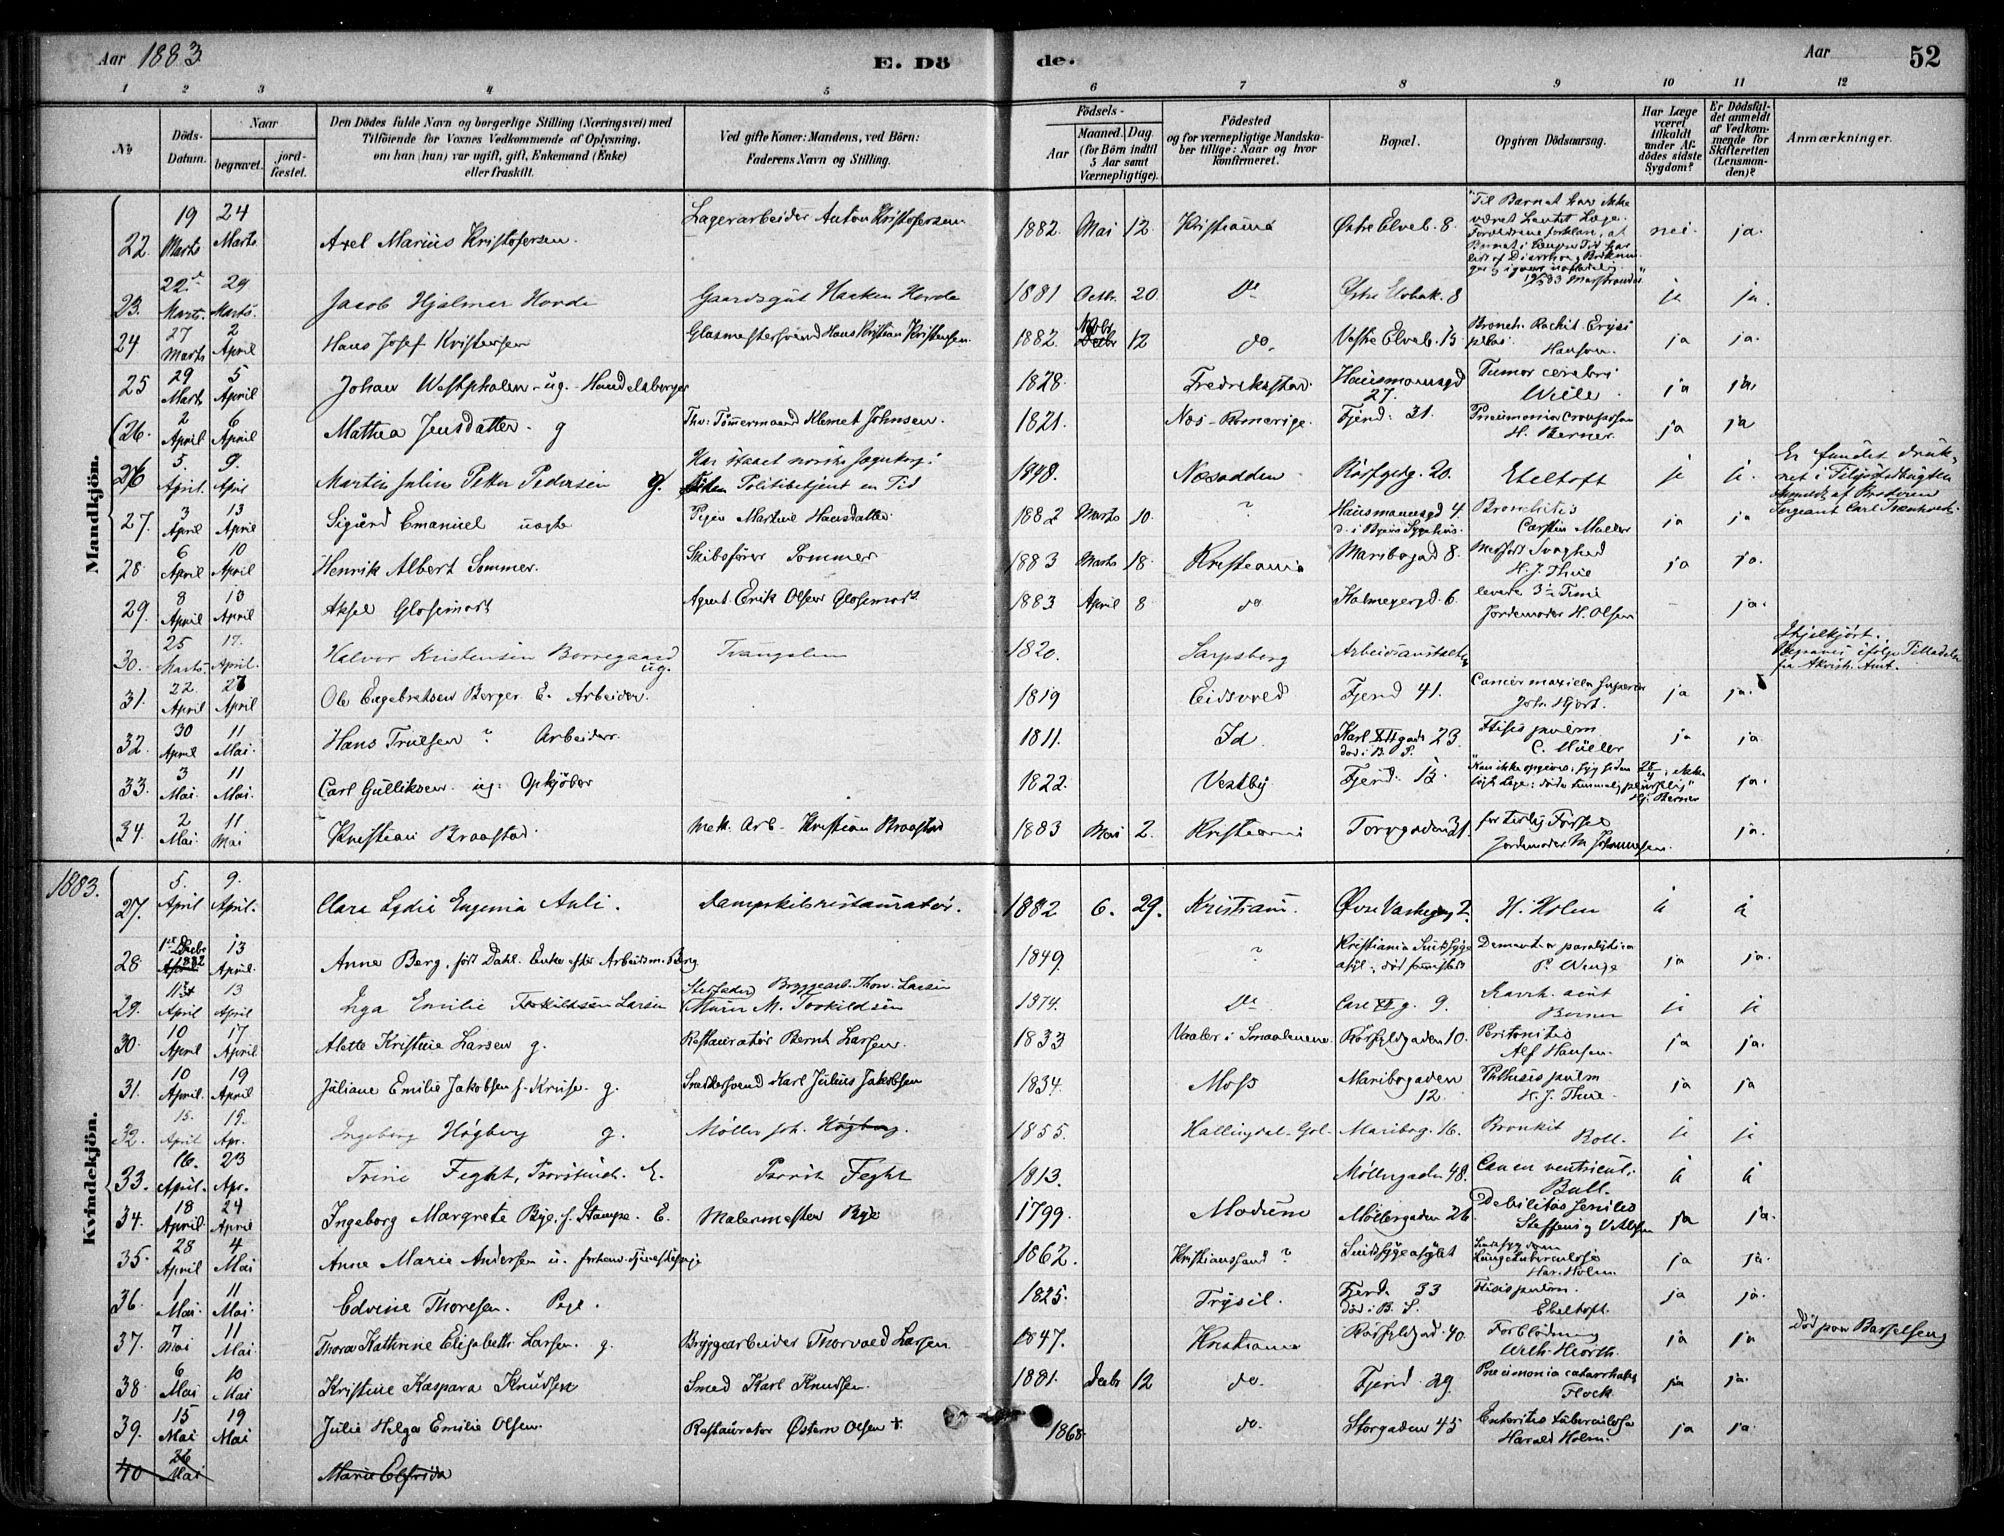 Aar 1883
E. Döde.
Aar
52
1 2 3 4 5 6 7 8 9 10 11 12
No
Döds-Datum.
Naar
begravet.
jordfæstet.
Den Dödes fulde Navn og borgerlige Stilling (Næringsvei) med
Tilföiende for Voxnes Vedkommende af Oplysning,
om han (hun) var ugift, gift, Enkemand (Enke)
eller fraskilt.
Ved gifte Koner: Mandens, ved Börn:
Faderens Navn og Stilling.
Födsels-
Aar
Maaned. Dag
(for Börn indtil
5 Aar samt
Værnepligtige).
Födested
og for værnepligtige Mandskaber tillige: Naar og hvor
konfirmeret.
Bopæl.
Opgiven Dödsaarsag.
Har Læge
været
tilkaldt
under Afdödes sidste
Sygdom?
Er Dödsfaldet anmeldt
af Vedkommende for
Skifteretten
(Lensmanden)?
Anmærkninger.
Mandkjön.
22. 19 Marts 24 Marts Axel Marius Kristofersen. Lagerarbeider Anton Kristofersen 1882 Mai 12 Kristiania Østre Elveb. 8 "Til Barnet har ikke været hentet Læge. nei ja.
23. 22 Marts. 29 Marts. Jacob Hjalmar Horde Gaardsgut Haaken Horde 1881 Octb. 20 Do Østre Elvbak. 8 ja.
24 27 Marts 2 April Hans Josef Kristensen Glasmestersvend Hans Kristian Kristensen 1882. Novbr 12 do. Vestre Elveb. 13 Bronch. Rachit. Erysipelas. Hansen. ja ja.
25 29 Marts 5 April Johan Westphalen - ug. - Handelsborger 1828. Fredrikstad Hausmannsgd 27. Tumor cerebri Wille ja ja.
(26. 2 April 6 April Mathea Jensdatter. g Tømmermand Klemet Johnsen. 1821. Næs - Romerige. Fjerd. 31. Pneumonia crouposa H. Berner. ja ja
26 5. April. 9. April Martin Julius Petter Pedersen g. Har staaet norske Jægerkorps. Politibetjent en Tid 1848. Næsodden Rørfgdg. 20. Ebeltoft Er fundet druknet Anmeldt af Broderen Sergeant Carl
27. 3 April 13 April Sigurd Emanuel uægte Pigen Martine Hansdatter. 1882 Marts 10. ? Hausmannsgd 4 d. i Byens Sygehus. Bronchitis Carsten Müller ja ja
28. 6 April 10 April Henrik Albert Sommer. Skibsfører Sommer 1883 Marts 18. Kristiania Maribogad 8. Medfødt Svaghed H. J. Thue ja ja.
29. 8 April 13 April Aksel Glosimodt Agent Erik Olsen Glosimodt 1883 April 8 do Kalmeyergd. 6 levede 3½ Time Jordemoder H. Olsen - ja.
30. 25 Marts. 17. April. Halvor Kristensen Borregaard ug. Tvangslem 1820. Sarpsborg Arbeidsanstalten Ihjelkjørt. Begraves ifølge Tilladelse fra Akersh. Amt.
31. 22. April 27 April Ole Engebretsen Berger E. Arbeider. 1819 Eidsvold Fjerd 41. Cancer maxillæ superior John Hjort. ja ja.
32. 30 April 11 Mai. Hans Trulsen ? Arbeider. 1811. Id. Karl XIIgade 23. død i B. S. Ftisis pulm. C. Müller ja ja.
33. 3 Mai. 11 Mai. Carl Gulliksen. ug. Opkjøber 1822. Vestby Fjerd. 13. "Kan ikke opgives; syg siden 28/4, ikke søgt Læge; døde temmelig pludselig" Hj. Berner ja.
34. 2 Mai. 11 Mai Kristian Braastad. Mek. Arb. Kristian Braastad 1883 Mai 2. Kristiania Torvgaden 31. for tidlig Fødsel Jordemoder M. Johannesen. ja.
1883.
Kvindekjön.
27. 5. April 9. April. Clara Lydia Eugenia Auli. Dampskibsrestauratør. 1882 6. 29. Kristiania. Øvre 2. H. Holm
28 1ste Decbr 1882 13 April. Anne Berg, født Dahl. Enke efter Arbeidsm. Berg 1849. ? Kristiania Sindssygeasyl. død sammesteds Dementia paralytica P. Winge ja ja.
29. 11 April 13 April Inga Emilie Torkildsen Larsen Stedfader Bryggearb. Thorv. Larsen Moder M. Torkildsen 1874. Do Carl XIIg. 9. Berner
30. 10 April 17 April Alette Kristine Larsen g. Restauratør Bernt Larsen. 1833 Vaaler i Smaalenene Rørfyldgaden 10. Peritonitis Alf Hansen. ja ja.
31. 10 April. 19 April Juliane Emilie Jakobsen f. Kruse. g. Snedkersvend Karl Julius Jakobsen 1834. Moss Maribogaden 12. Phthisis pulm H. J. Thue. ja ja
32. 15. April 19. Apr. Ingeborg Högberg g. Møller Joh. Högberg. 1855. Hallingdal. Gol. Maribog. 16. Bronkit Roll.
33. 16. April. 23 Apr. Trine Feght, E. Feght 1813. Møllergaden 48. Cancer ventriculi. Bull.
34. 18 April. 24 April Ingeborg Margrete Bye, f. Stampe. E. Malermester Bye 1799. Modum Møllergaden 26. Debilitas senilis ja ja.
35. 28 April 4 Mai Anne Marie Andersen u. forhenv. Tjenestepige 1862. Kristianssand ? Sindssygeasylet Sindssygdom Lungetuberculose Har. Holm. ja ja.
36. 1 Mai. 11 Mai. Edvine Thoresen. Pige. 1825. Trysil. Fjerd. 33 død i B. S. Ftisis pulm. Ebeltoft. ja ja.
37. 7 Mai 11 Mai. Thora Kathrine Elisabeth Larsen. g. Bryggearbeider Thorvald Larsen 1847. Kristiania Rørfyldgad. 40. Forblødning Wilh. Hiorth. ja ja Død paa Barselseng
38. 6 Mai 10 Mai Kristine Kaspara Knudsen Smed Karl Knudsen. 1881. Decbr 12 do. Fjerd 29. Pneumonia catarrhalis Flock. ja ja.
39. 15 Mai 19 Mai Julie Helga Emilie Olsen. Restauratør Østern Olsen † 1868 do. Storgaden 45 Enteritis tuberculosa Harald Holm. ja ja
40 26 Mai Marie Elfrida